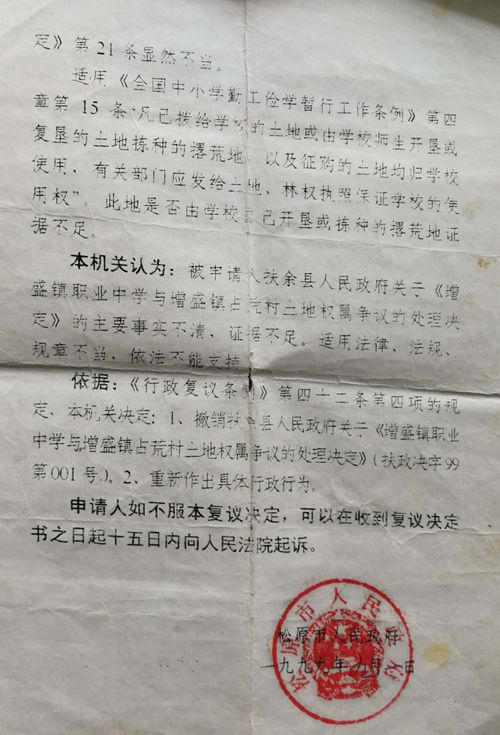 定》第21条显然不当。
适用《全国中小学勤工俭学暂行工作条例》第四
章第15条“凡已拨给学校的土地或由学校师生开垦或
复垦的土地拣种的撂荒地，以及征购的土地均归学校
使用，有关部门应发给土地、林权执照保证学校的使
用权”。此地是否由学校自己开垦或拣种的撂荒地证
据不足。
本机关认为：被申请人扶余县人民政府关于《增
盛镇职业中学与增盛镇占荒村土地权属争议的处理决
定》的主要事实不清，证据不足。适用法律、法规、
规章不当，依法不能支持。
依据：《行政复议条例》第四十二条第四项的规
定，本机关决定：1、撤销扶余县人民政府关于《增盛镇职业
中学与增盛镇占荒村土地权属争议的处理决定》（扶政决字99
第001号）。2、重新作出具体行政行为。
申请人如不服本复议决定，可以在收到复议决定
书之日起十五日内向人民法院起诉。
松原市人民政府
松原市人民政府
一九九九年 月 日